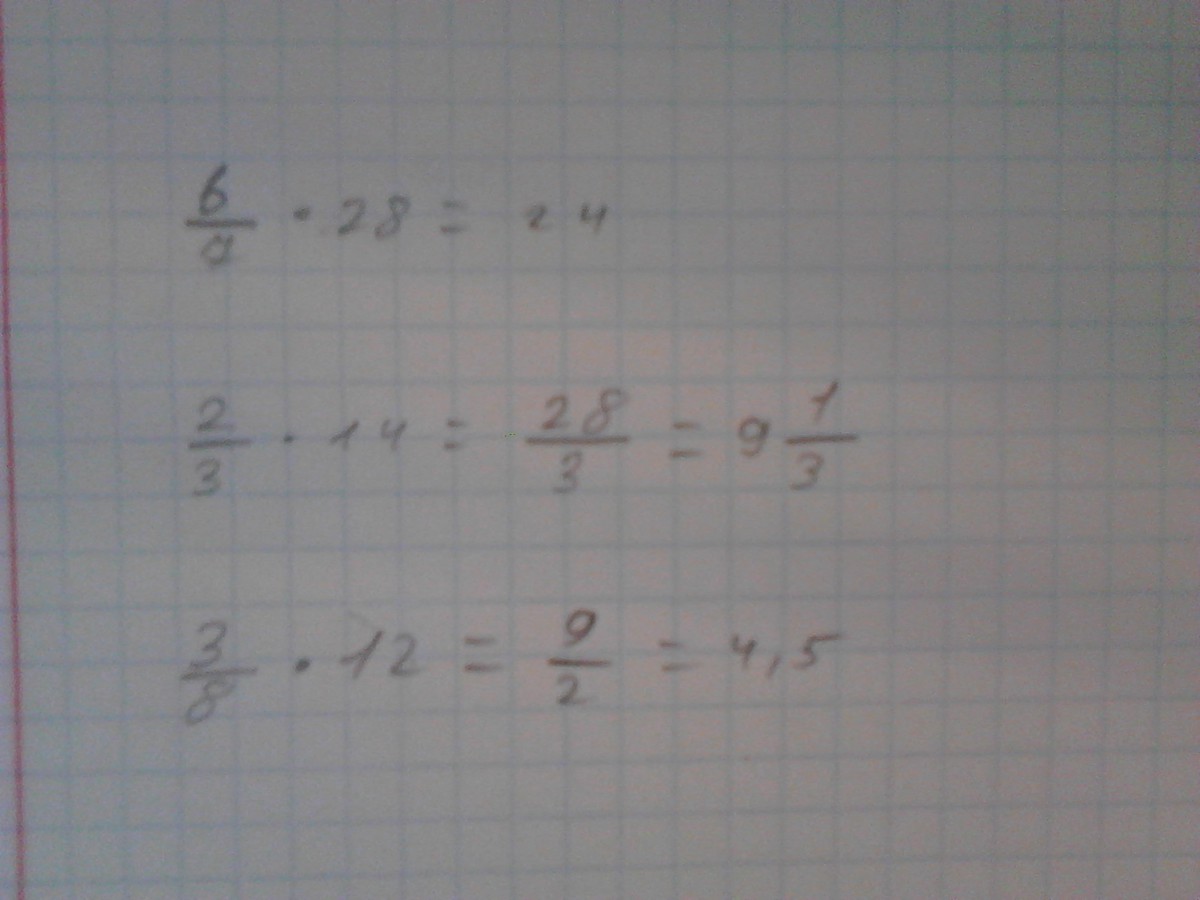 6/7 · 28 = 24
2/3 · 14 = 28/3 = 9 1/3
3/8 · 12 = 9/2 = 4,5